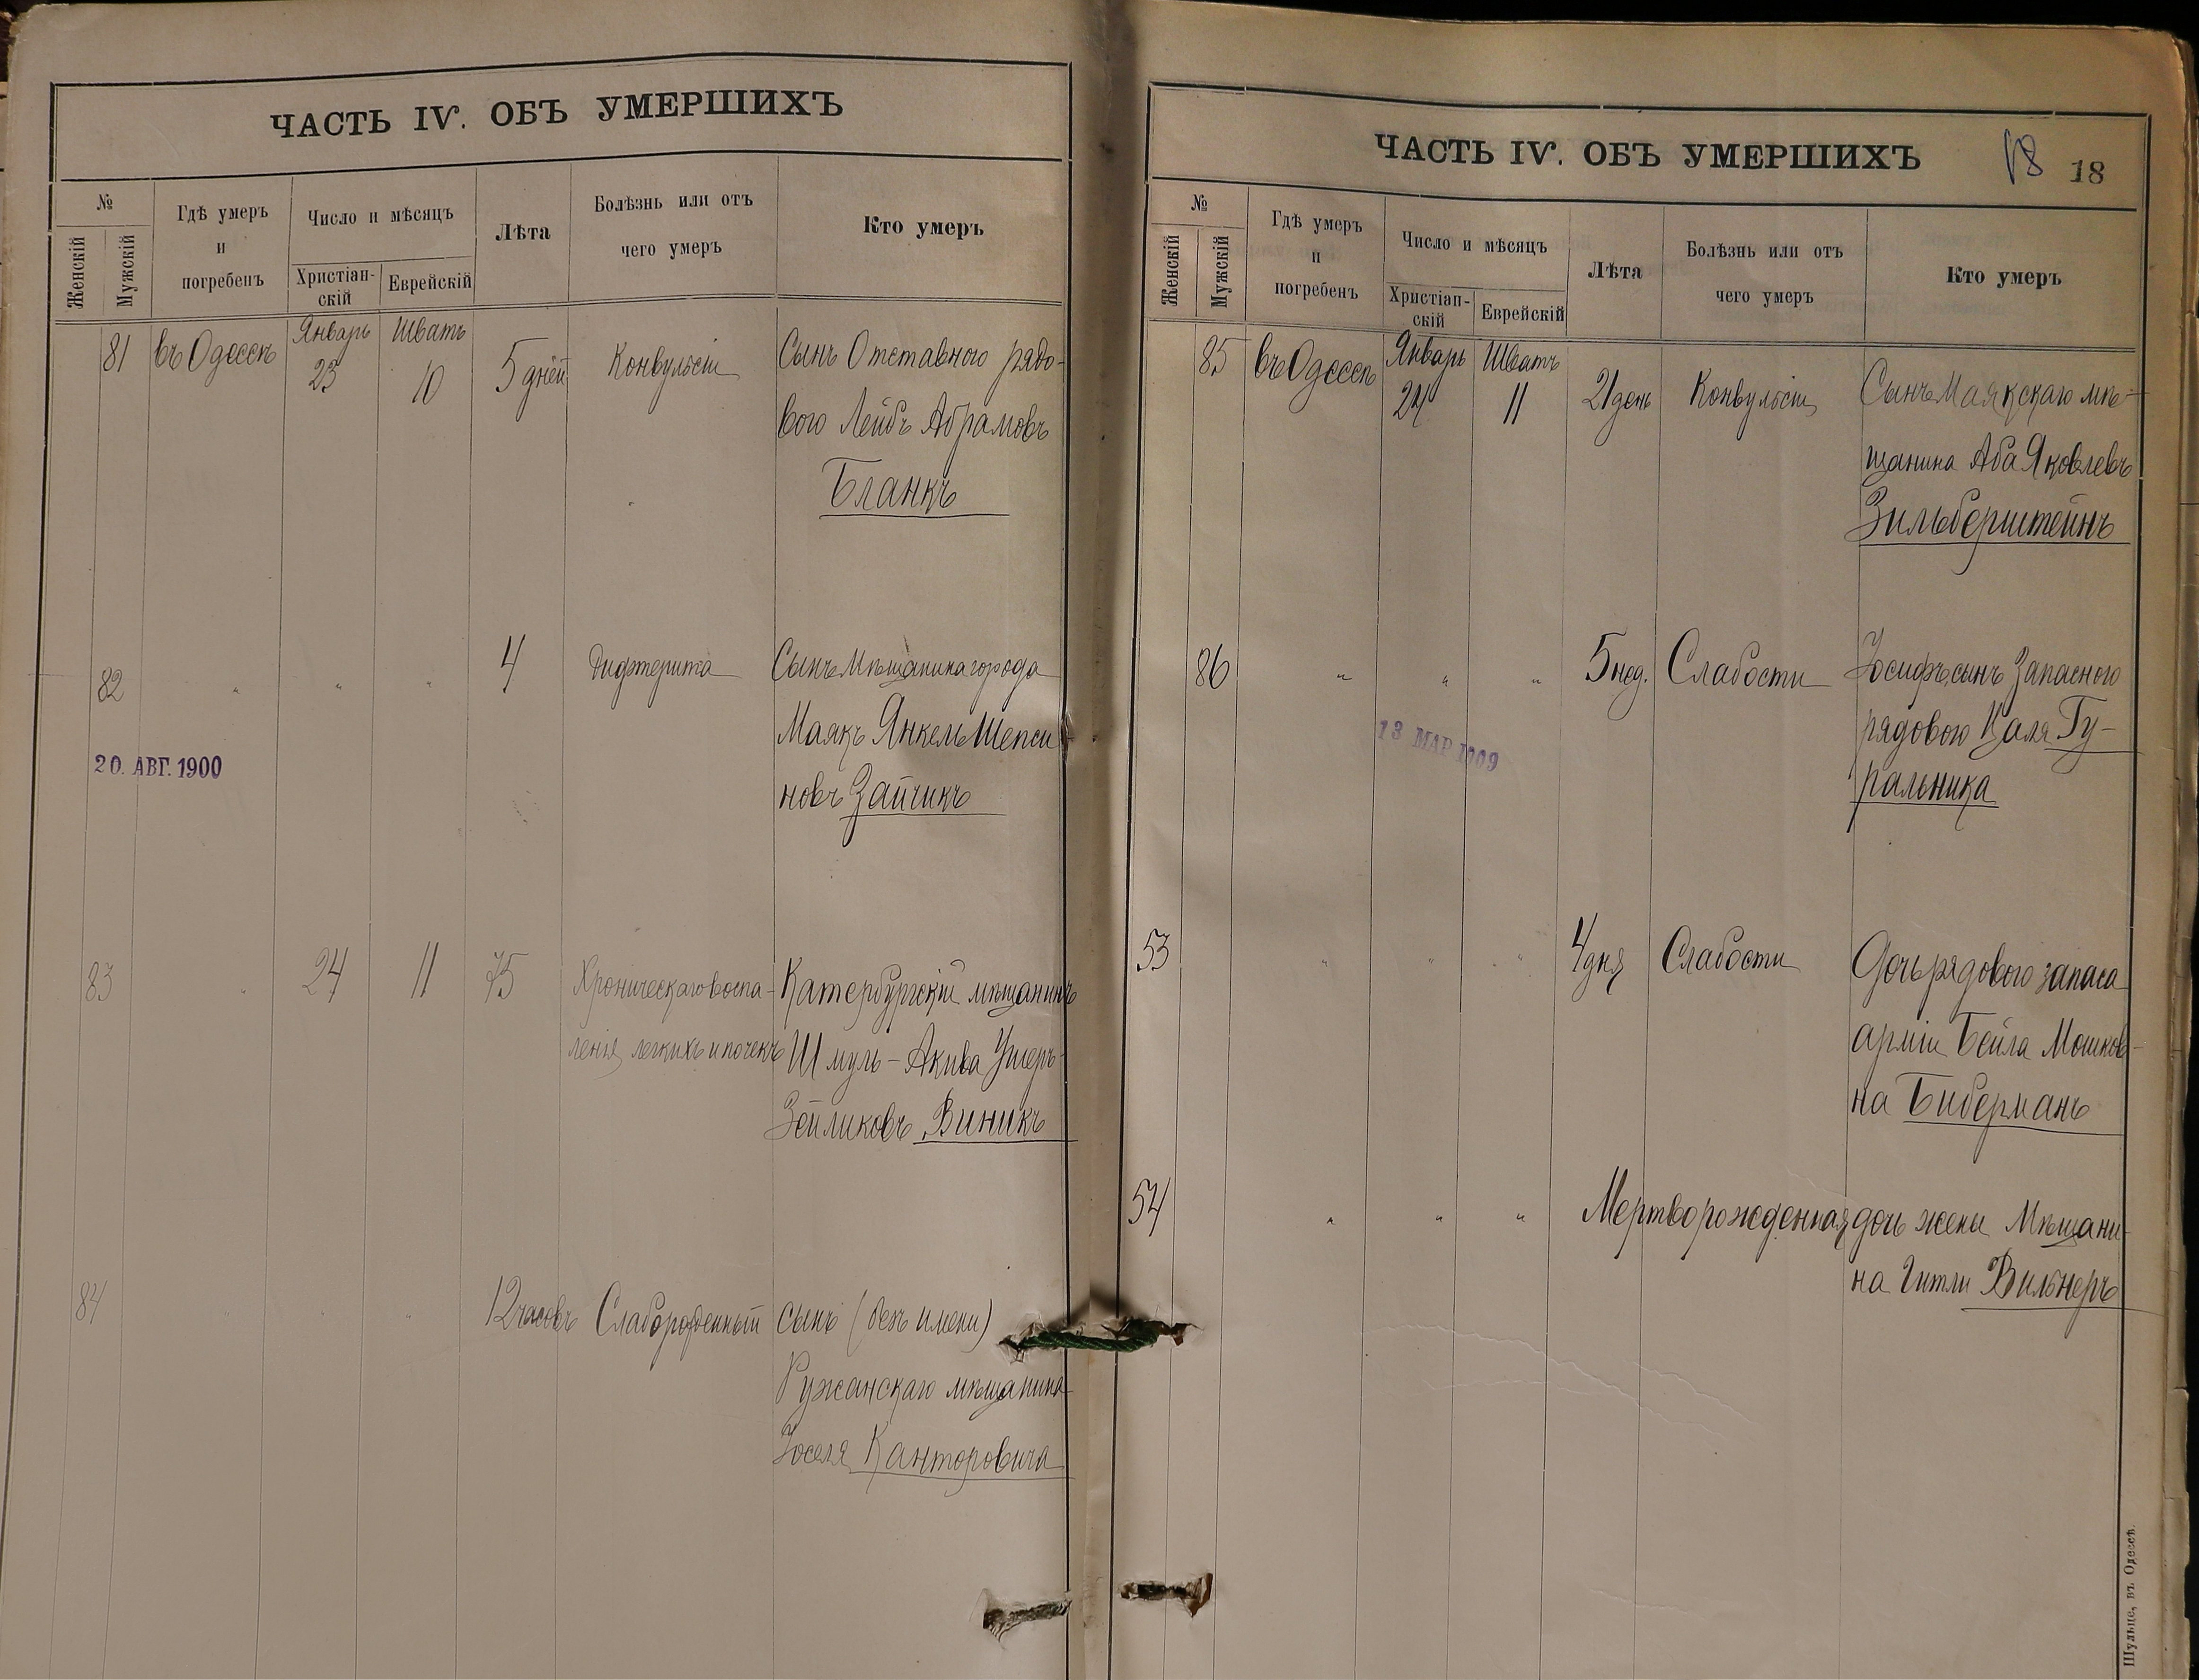 ЧАСТЬ IV. ОБЪ УМЕРШИХЪ
№
Женскій
Мужскій
Гдѣ умеръ
и
погребенъ
Число и мѣсяцъ
Христіан-
скій
Еврейскій
Лѣта
Болѣзнь или отъ
чего умеръ
Кто умеръ
81 въ Одессѣ Январь 23 Шватъ 10 5 дней Конвульсіи Сынъ Отставного рядо-
вого Лейбъ Абрамовъ
Бланкъ
82 " " " 4 Дифтерита Сынъ Мѣщанина города
Маякъ Янкель Шепси
новъ Зайчикъ
20. АВГ. 1900
83 " 24 11 75 Хроническаго воспа- Катербургскій мѣщанинъ
ленія легкихъ и почекъ Шмуль-Акива Ушеръ-
Зейликовъ Виникъ
84 " " " 12 часовъ Слаборожденный сынъ (безъ имени)
Ружанскаго мѣщанина
Іоселя Канторовича
ЧАСТЬ IV. ОБЪ УМЕРШИХЪ
18 18
№
Женскій
Мужскій
Гдѣ умеръ
и
погребенъ
Число и мѣсяцъ
Христіан-
скій
Еврейскій
Лѣта
Болѣзнь или отъ
чего умеръ
Кто умеръ
85 въ Одессѣ Январь 24 Шватъ 11 21 день Конвульсіи Сынъ Маякскаго мѣ-
щанина Аба Яковлевъ
Зильберштейнъ
86 " " " 5 нед. Слабости Іосифъ, сынъ Запасного
рядового Цаля Гу-
ральника
13 МАР 1909
53 " " " 4 дня Слабости Дочь рядового запаса
арміи Бейла Мошков-
на Биберманъ
54 " " " Мертворожденная дочь жены Мѣщани-
на Гитли Вильнеръ
Шульце, въ Одессѣ.